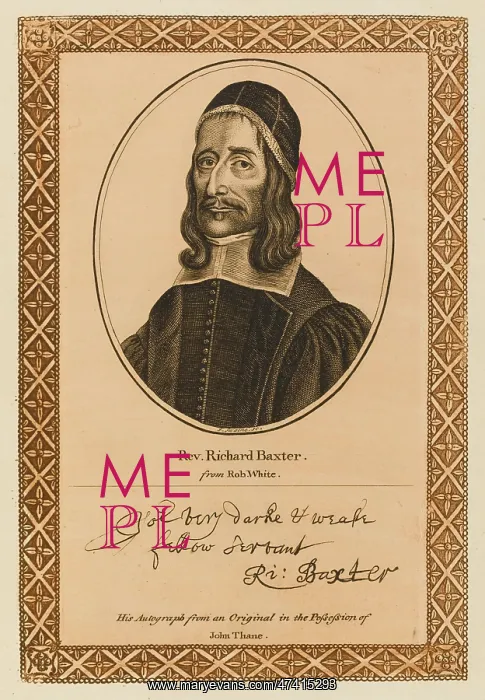 ME
PL
Rev. Richard Baxter.
from Rob. White.
ME
PL
very darke & weake
fellow servant
Ri: Baxter
His Autograph from an Original in the Possession of
John Thane.
www.maryevans.com/47415293